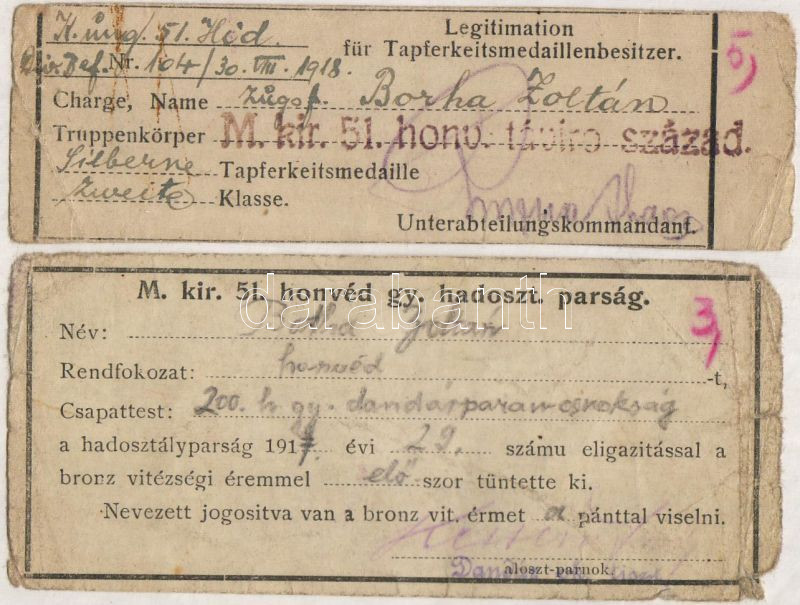 K. ung. 51. Hdd.
Legitimation
Div. Bef. Nr. 104/30. VIII. 1918.
für Tapferkeitsmedaillenbesitzer.
5)
Charge, Name Zugsf. Borha Zoltán
Truppenkörper M. kir. 51. honv. táviró század.
Silberne Tapferkeitsmedaille
Zweite Klasse.
Unterabteilungskommandant.
M. kir. 51. honvéd gy. hadoszt. parság.
3)
Név: Zoltán
Rendfokozat: honvéd -t,
Csapattest: 200. h. gy. dandárparancsnokság
a hadosztályparság 1917 évi 29. számu eligazitással a
bronz vitézségi éremmel elő szor tüntette ki.
Nevezett jogositva van a bronz vit. érmet a pánttal viselni.
aloszt-parnok.
darabanth